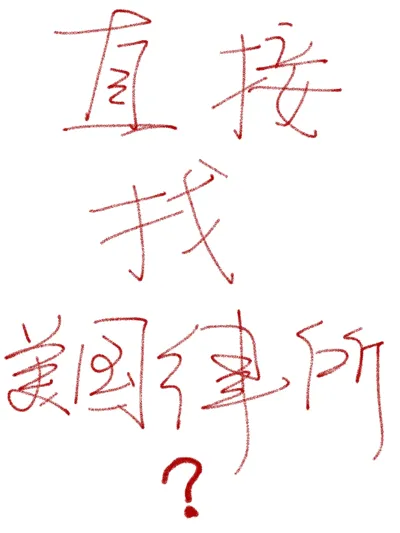 直接
找
美国律所
?